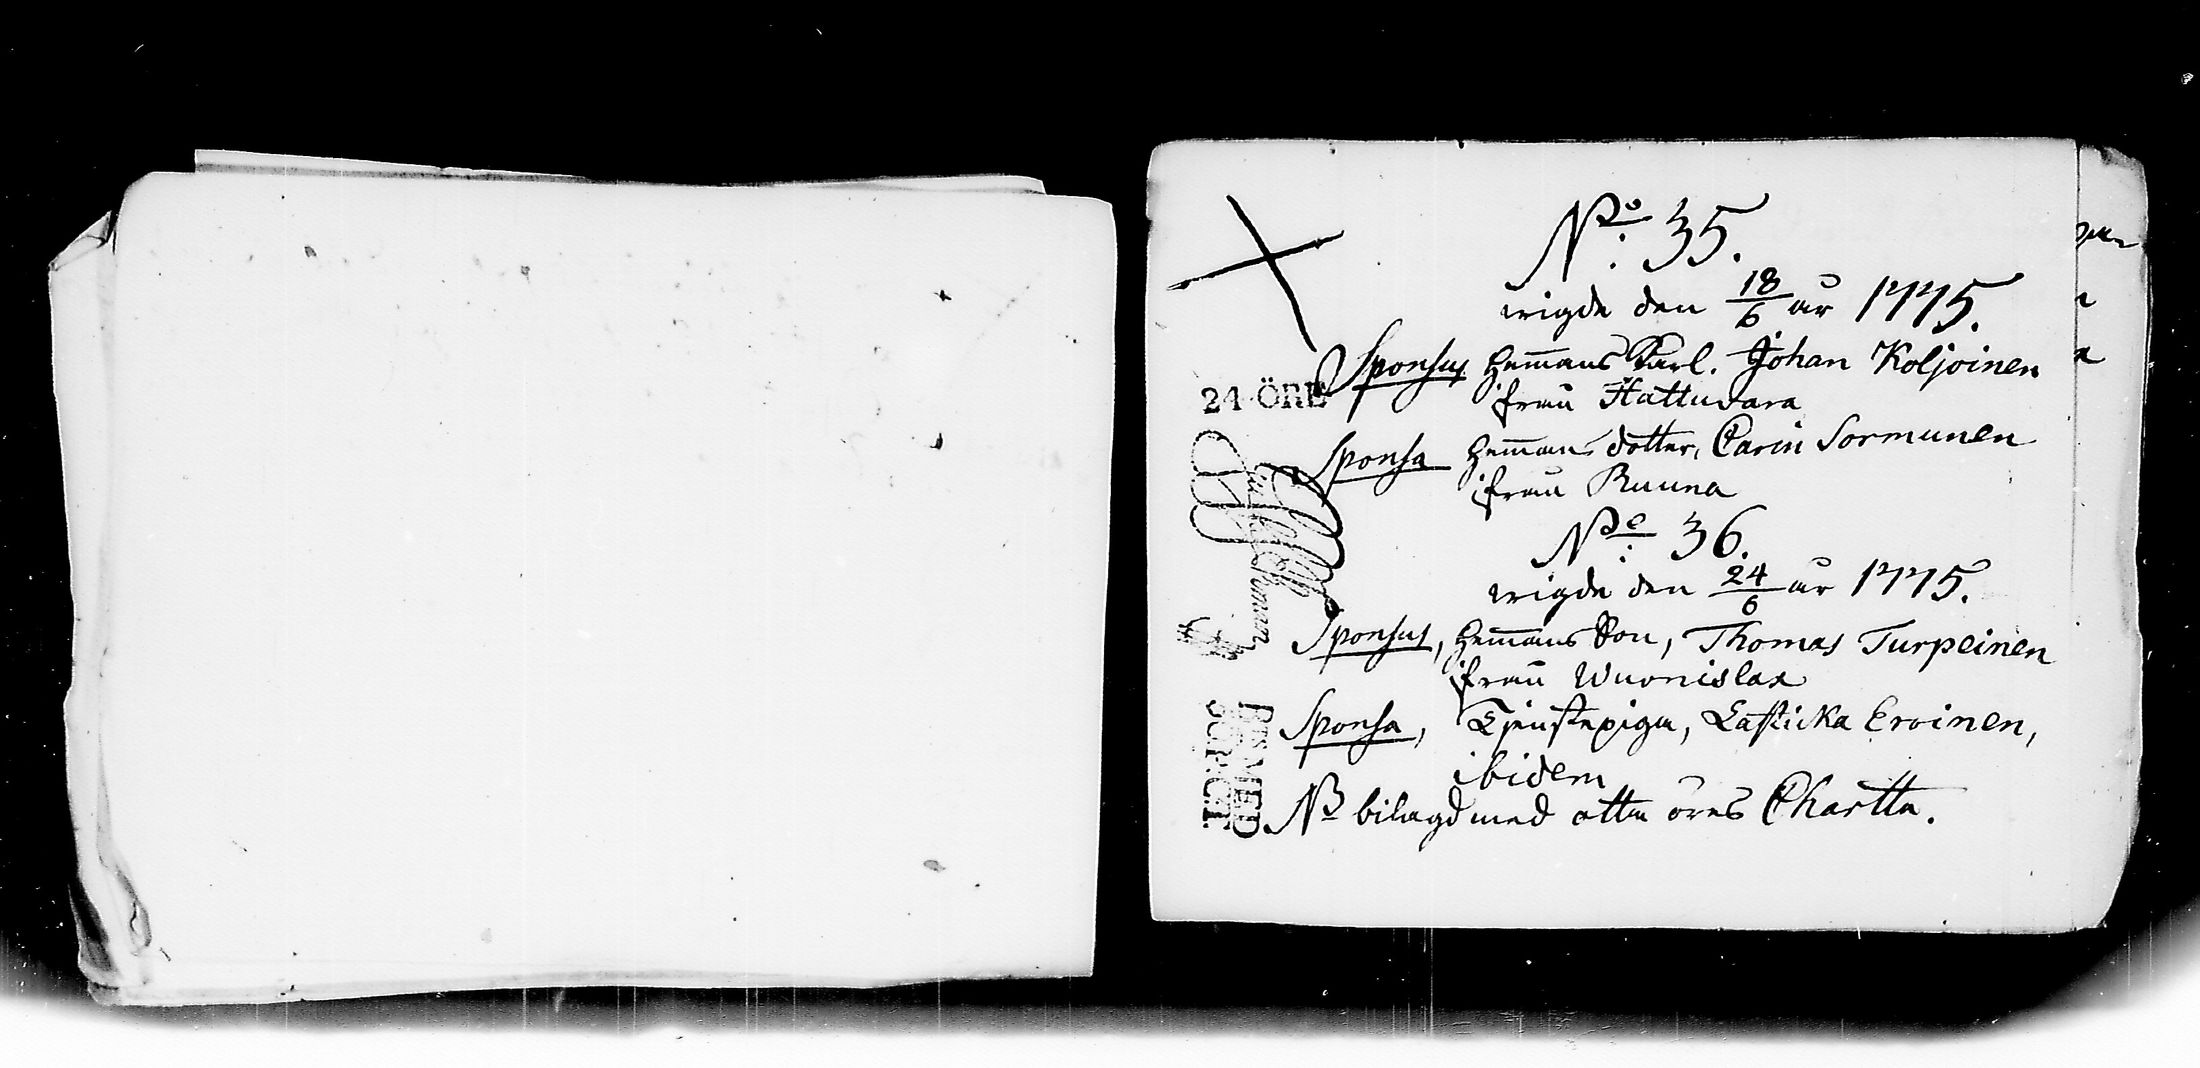 No: 35.
wigde den 18/6 år 1775.
Sponsus Hem̅ans Karl. Johan Koljoinen
ifrån Hattuvara
Sponsa Hem̅ans dotter, Carin Sormunen
ifrån Ruuna
No: 36.
wigde den 24/6 år 1775.
Sponsus, Hem̅ans Son, Thomas Turpeinen
ifrån Wuonislax
Sponsa, Tjenstepiga, Lasticka Eroinen,
ibidem
NB bilagd med otta öres Chartta.
24 ÖRE